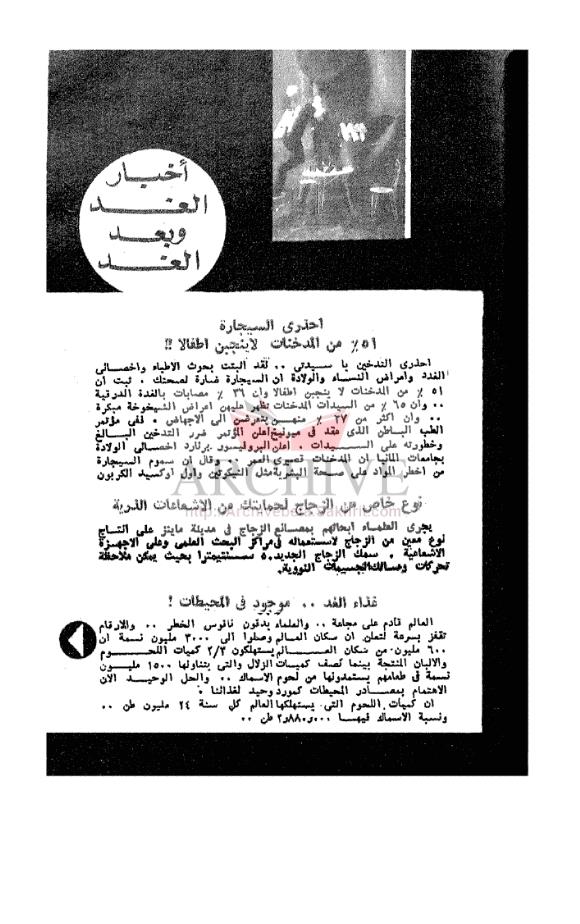 أخبار
الغد
وبعد
الغد
احذرى السيجارة
٥١ ٪ من المدخنات لاينجبن اطفالا !!
احذرى التدخين يا سيدتى .. لقد اثبتت بحوث الاطباء واخصائى
الغدد وامراض النساء والولادة ان السيجارة ضارة لصحتك . ثبت ان
٥١ ٪ من المدخنات لا ينجبن اطفالا وان ٣٦ ٪ مصابات بالغدة الدرقية
.. وان ٦٥ ٪ من السيدات المدخنات تظهر عليهن اعراض الشيخوخة مبكرة
.. وان اكثر من ٢٧ ٪ منهن يتعرضن الى الاجهاض . ففى مؤتمر
الطب الباطن الذى عقد فى ميونيخ اعلن المؤتمر ضرر التدخين البالغ
وخطورته على السيدات . اعلن البروفيسور برنارد اخصائى الولادة
بجامعات المانيا ان المدخنات قصيرى العمر .. وقال ان سموم السيجارة
من اخطر المواد على صحة البشرية مثل النيكوتين واول اوكسيد الكربون
ARCHIVE
http://Archivebeta.Sakhrit.com
نوع خاص من الزجاج لحمايتك من الاشعاعات الذرية
يجرى العلماء ابحاثهم بمصانع الزجاج فى مدينة ماينز على انتاج
نوع معين من الزجاج لاستعماله فى مراكز البحث العلمى وعلى الاجهزة
الاشعاعية . سمك الزجاج الجديد ٥٠ سنتيمترا بحيث يمكن ملاحظة
تحركات ومسالك الجسيمات النووية.
غذاء الغد .. موجود فى المحيطات !
العالم قادم على مجاعة .. والعلماء يدقون ناقوس الخطر .. والارقام
تقفز بسرعة لتعلن ان سكان العالم وصلوا الى ٣٠٠٠ مليون نسمة ان
٦٠٠ مليون من سكان العالم يستهلكون ٢/٣ كميات اللحوم
والالبان المنتجة بينما نصف كميات الزلال والتى يتناولها ١٥٠٠ مليون
نسمة فى طعامهم يستمدونها من لحوم الاسماك .. والحل الوحيد الان
الاهتمام بمصادر المحيطات كمورد وحيد لغذائنا .
ان كميات اللحوم التى يستهلكها العالم كل سنة ٢٤ مليون طن ..
ونسبة الاسماك فيها ٢٫٨٨٠٫٠٠٠ طن ..